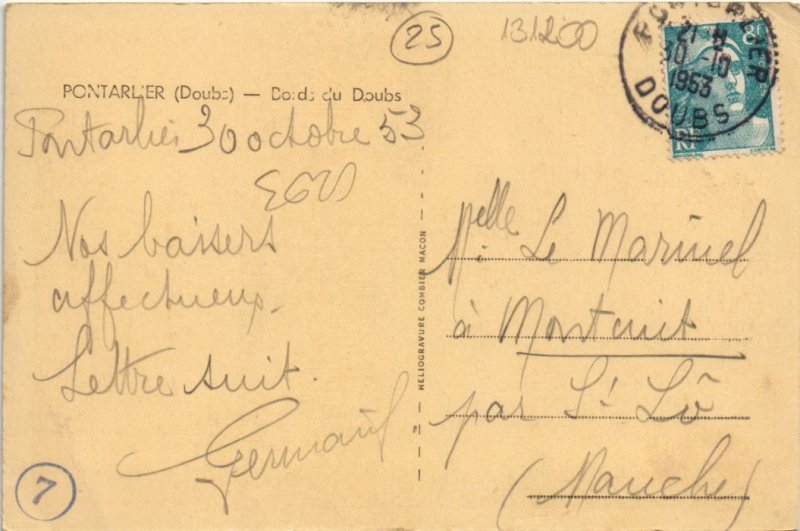 25
131200
PONTARLIER (Doubs) — Bords du Doubs
Pontarlier 30 octobre 53
Nos baisers
affectueux.
Lettre suit.
Germain
7
HELIOGRAVURE COMBIER MACON
PONTARLIER
21 H
30 -10
1953
DOUBS
8F
RF
Melle Le Marinel
à Montcuit
par St Lô
(Manche)